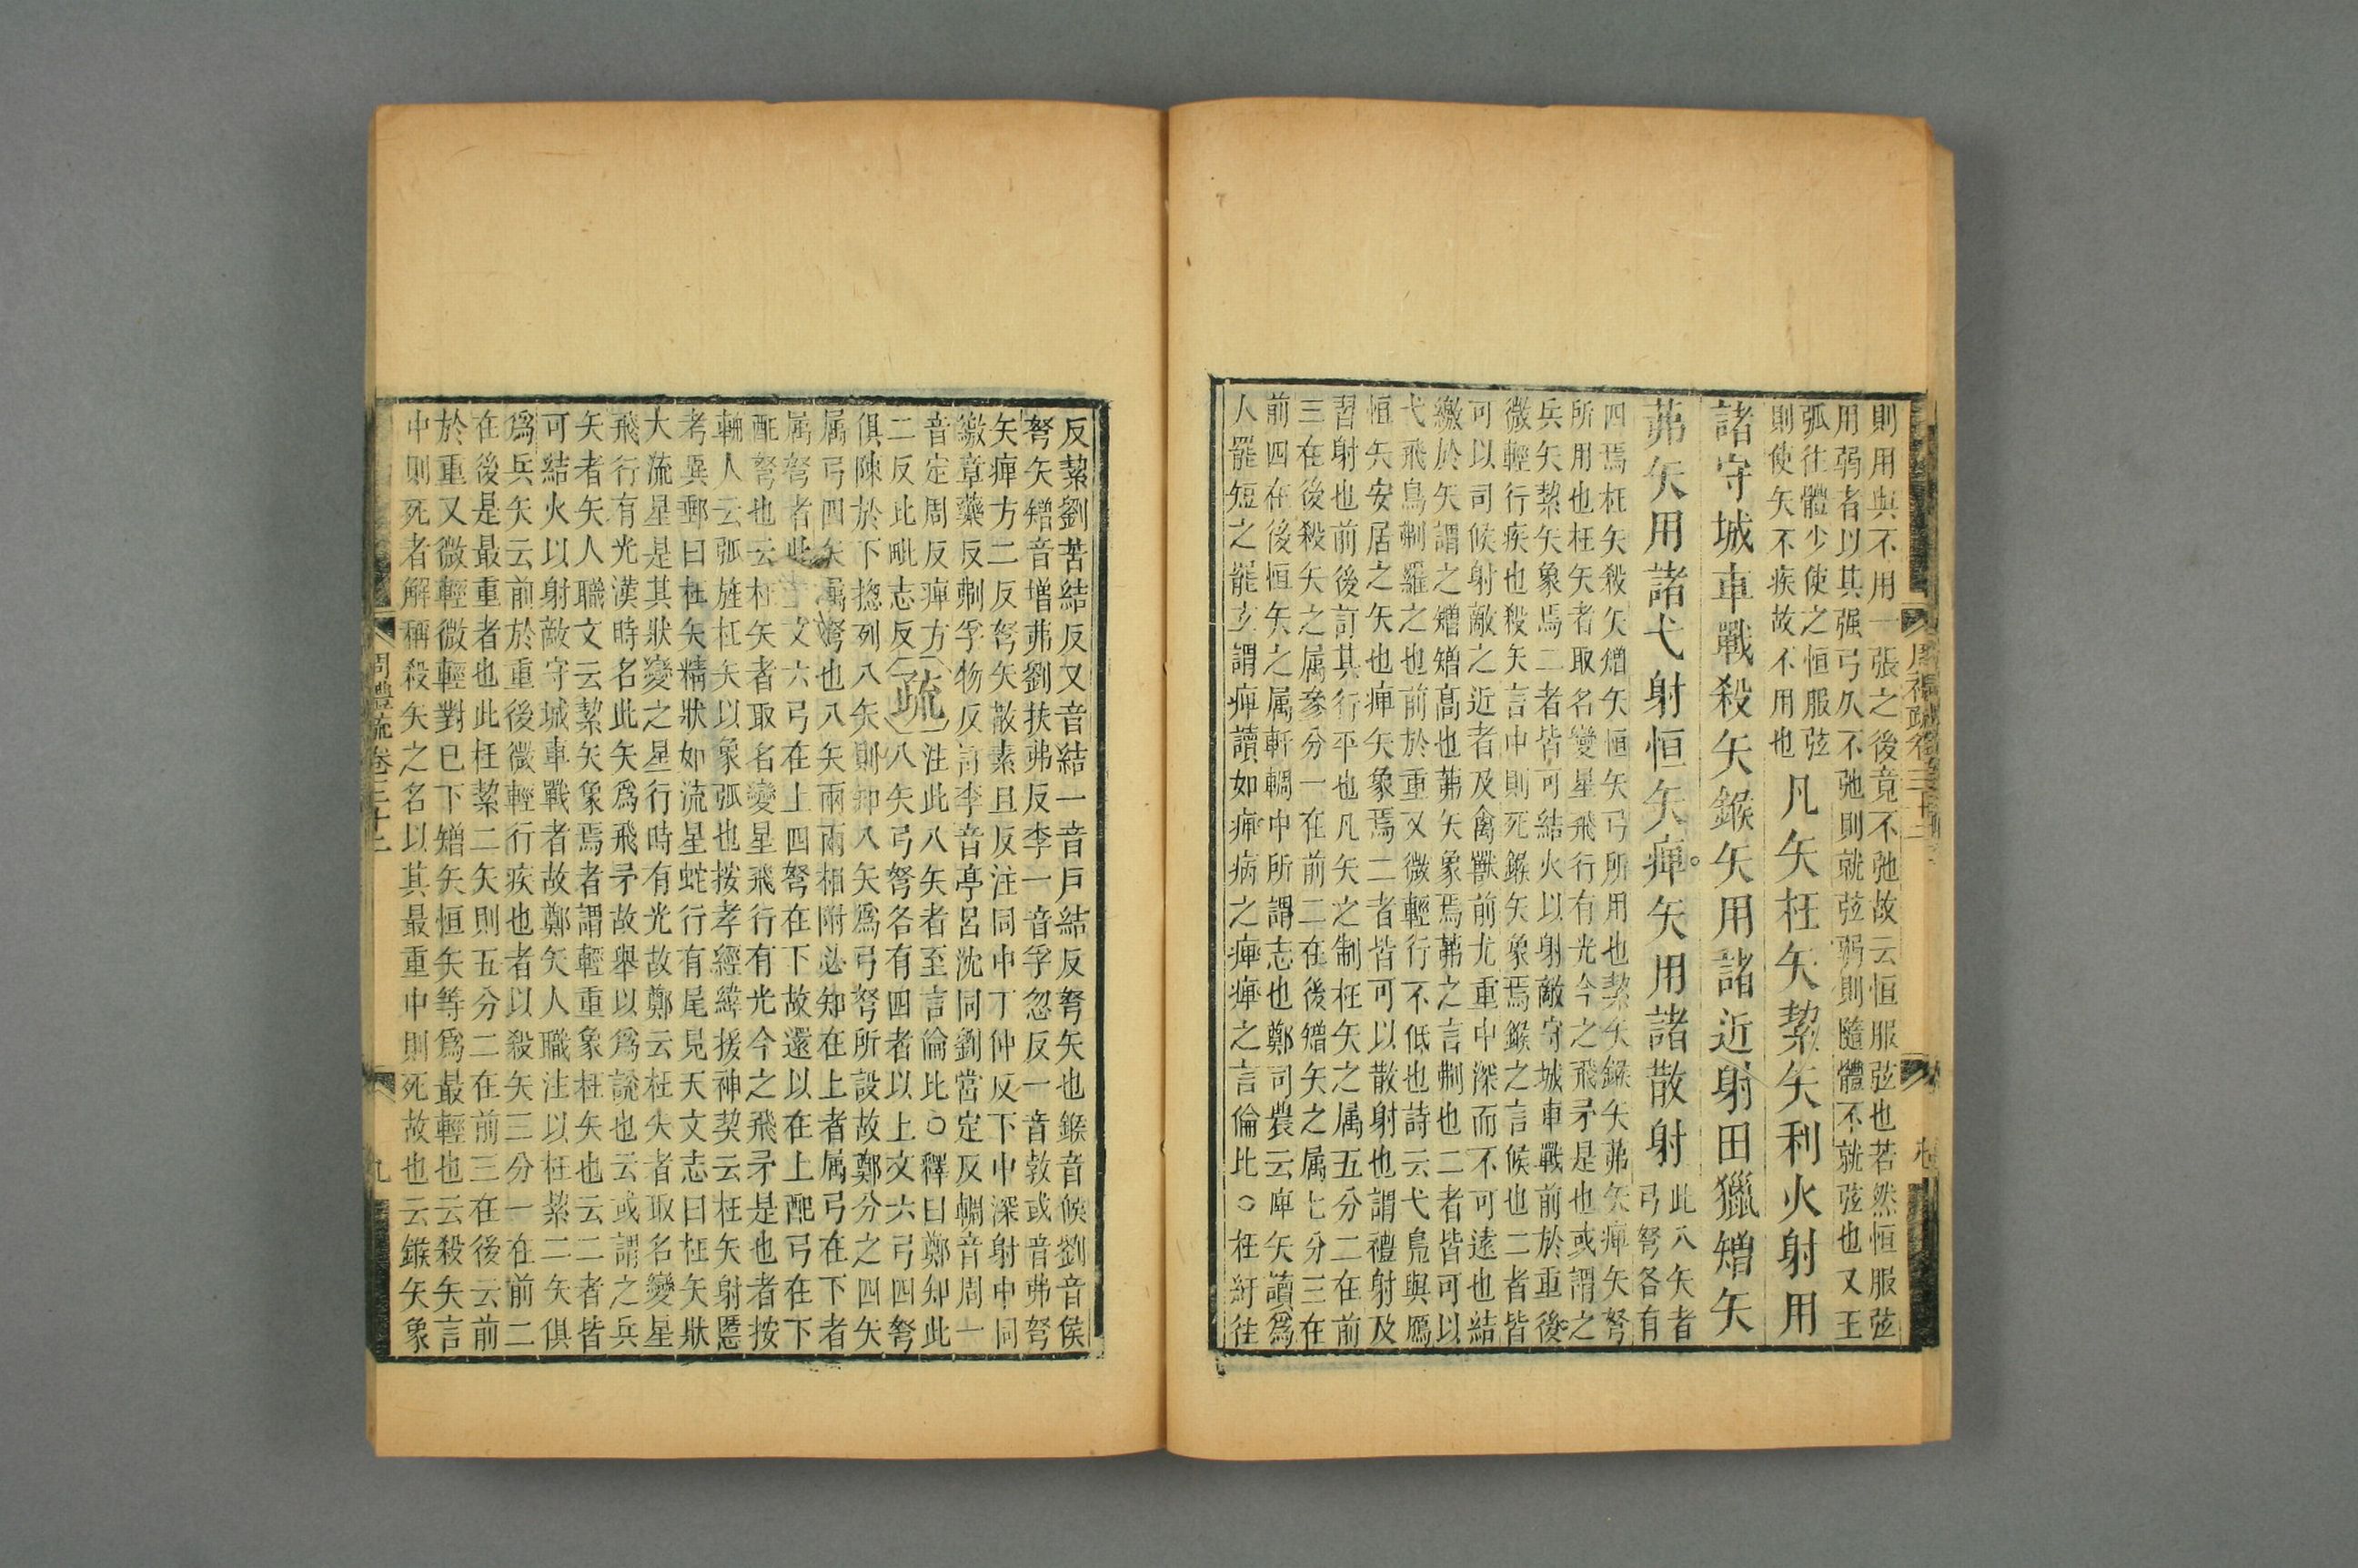 則用與不用一張之後竟不弛故云恒服弦也若然恒服弦
用弱者以其强弓久不弛則就弦弱則隨體不就弦也又王
弧往體少使之恒服弦
則使矢不疾故不用也
凡矢枉矢絜矢利火射用
諸守城車戰殺矢鍭矢用諸近射田獵矰矢
茀矢用諸弋射恒矢痺矢用諸散射
此八矢者
弓弩各有
四焉枉矢殺矢矰矢恒矢弓所用也絜矢鍭矢茀矢痺矢弩
所用也枉矢者取名變星飛行有光今之飛矛是也或謂之
兵矢絜矢象焉二者皆可結火以射敵守城車戰前於重後
微輕行疾也殺矢言中則死鍭矢象焉鍭之言候也二者皆
可以司候射敵之近者及禽獸前尤重中深而不可遠也結
繳於矢謂之矰矰髙也茀矢象焉茀之言刜也二者皆可以
弋飛鳥刜羅之也前於重又微輕行不低也詩云弋鳬與鴈
恒矢安居之矢也痺矢象焉二者皆可以散射也謂禮射及
習射也前後訂其行平也凡矢之制枉矢之属五分二在前
三在後殺矢之属參分一在前二在後矰矢之属七分三在
前四在後恒矢之属軒輖中所謂志也鄭司農云庳矢讀爲
人罷短之罷玄謂痺讀如痺病之痺痺之言倫比○枉紆往
反絜劉苦結反又音結一音戸結反弩矢也鍭音候劉音侯
弩矢矰音增茀劉扶弗反李一音孚忽反一音敦或音弗弩
矢痺方二反弩矢散素且反注同中丁仲反下中深射中同
繳章藥反刜孚物反訂李音亭呂沈同劉當定反輖音周一
音定周反痺方
二反比毗志反
疏
注此八矢者至言倫比○釋曰鄭知此
八矢弓弩各有四者以上文六弓四弩
俱陳於下揔列八矢則知八矢爲弓弩所設故鄭分之四矢
属弓四矢属弩也八矢兩兩相附必知在上者属弓在下者
属弩者此上文六弓在上四弩在下故還以在上配弓在下
配弩也云枉矢者取名變星飛行有光今之飛矛是也者按
輈人云弧旌枉矢以象弧也按孝經緯援神契云枉矢射慝
考異郵曰枉矢精狀如流星蛇行有尾見天文志曰枉矢狀
大流星是其狀變之星行時有光故鄭云枉矢者取名變星
飛行有光漢時名此矢爲飛矛故舉以爲說也云或謂之兵
矢者矢人職文云絜矢象焉者謂輕重象枉矢也云二者皆
可結火以射敵守城車戰者故鄭矢人職注以枉絜二矢俱
爲兵矢云前於重後微輕行疾也者以殺矢三分一在前二
在後是最重者也此枉絜二矢則五分二在前三在後云前
於重又微輕微輕對巳下矰矢恒矢等爲最輕也云殺矢言
中則死者解稱殺矢之名以其最重中則死故也云鍭矢象
周禮疏卷三十二
九